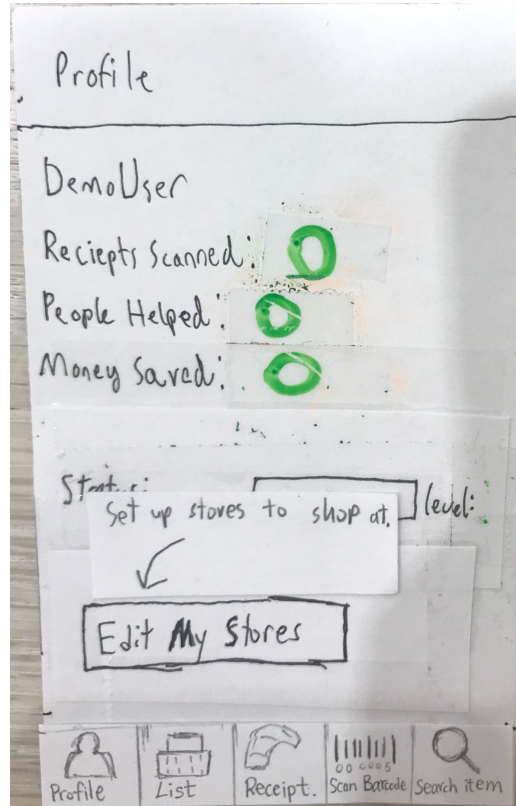 Profile
DemoUser
Reciepts Scanned: 0
People Helped: 0
Money Saved: 0
Status: level:
Set up stores to shop at.
Edit My Stores
Profile List Receipt. Scan Barcode Search item